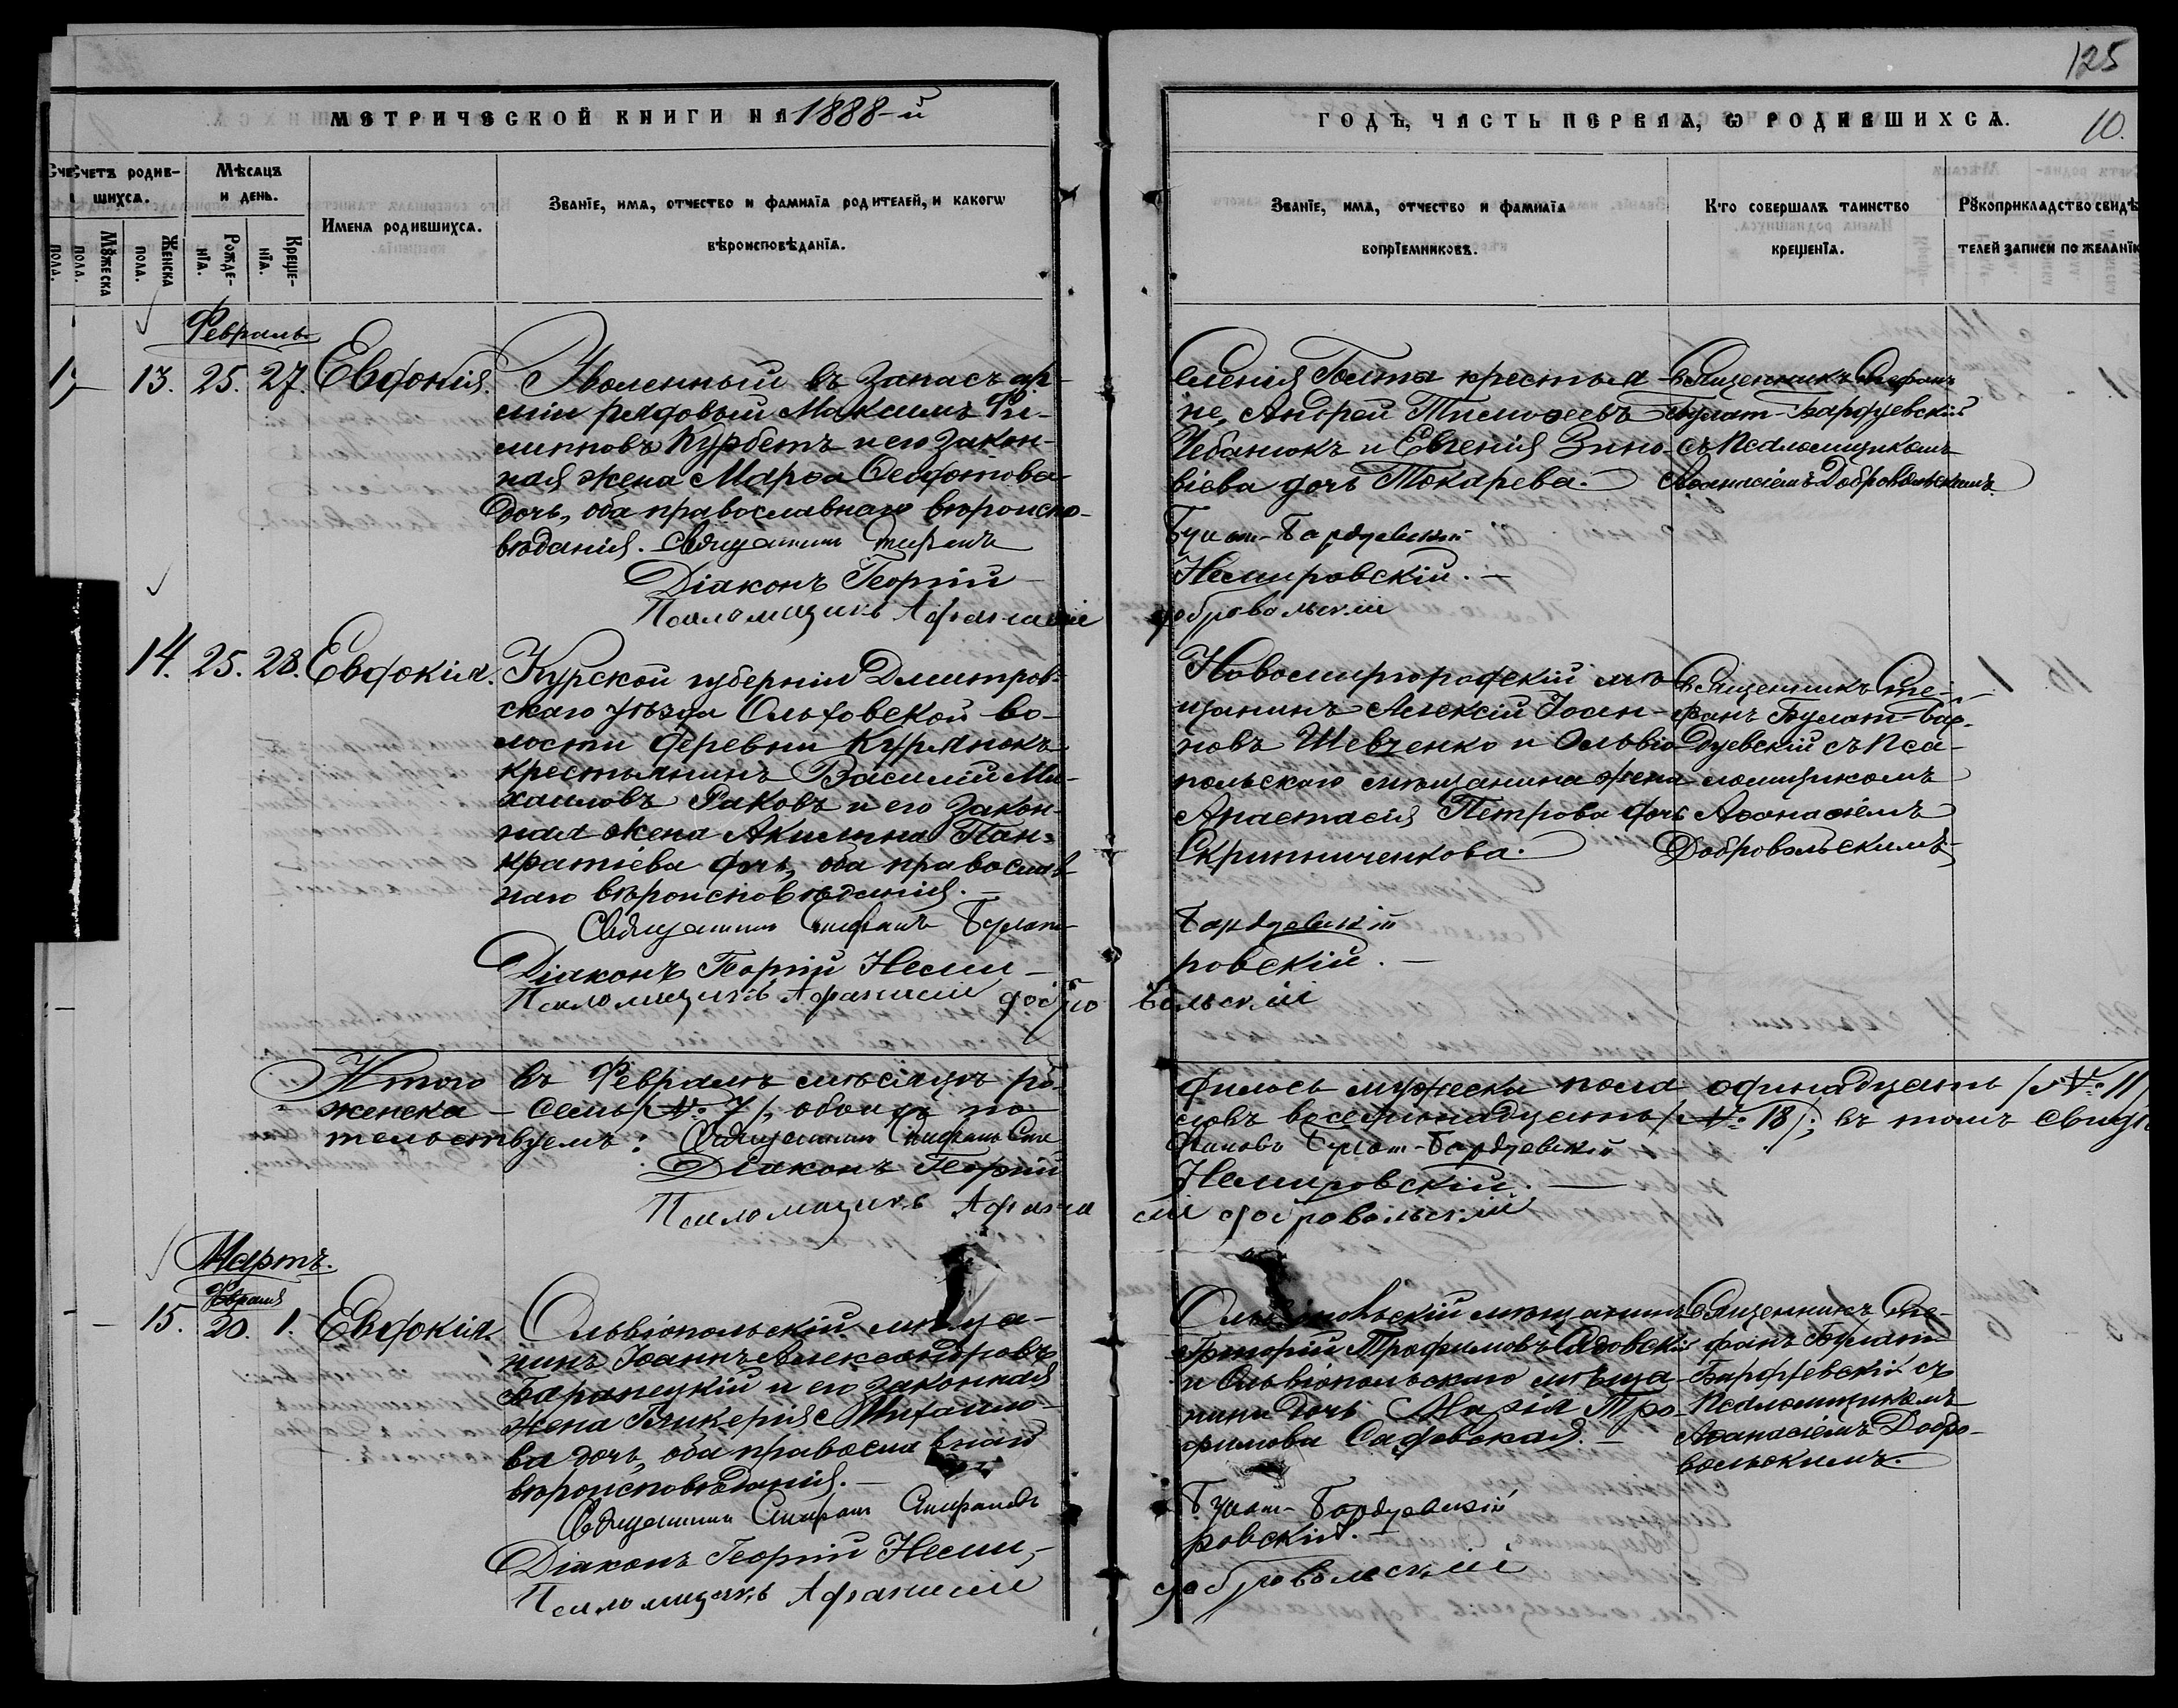 125
МЕТРИЧЕСКОЙ КНИГИ НА 1888-й
ГОДЪ, ЧАСТЬ ПЕРВАЯ, Ѡ РОДИВШИХСѦ.
10.
Счетъ родив-
шихсѧ.
Мѣсяцъ
и день.
Имена родившихсѧ.
Званїе, имѧ, отчество и фамилїѧ родителей, и какогѡ
вѣроисповѣданїѧ.
Званїе, имѧ, отчество и фамилїѧ
воспрїемниковъ.
Кто совершалъ таинство
крещенїѧ.
Рꙋкоприкладство свидѣ
телей записи по желанїю
Мꙋжеска
пола.
Женска
пола.
Рожде-
нїѧ.
Креще-
нїѧ.
Февраль
13. 25. 27. Евдокія.
Уволенный въ запасъ ар-
міи рядовый Максимъ Фи-
липповъ Курбетъ и его закон-
ная жена Марѳа Ѳеодотова
дочь, оба православнаго вѣроиспо-
вѣданія. Священникъ Стефанъ
Діаконъ Георгій
Псаломщикъ Афанасій
селенія Голта крестья-
не, Андрей Тимоѳеевъ
Чебанюкъ и Евгенія Зино-
віева дочь Токарева.
Булат-Бардуевскій
Немировскій.
Добровольскій
Священникъ Стефанъ
Булат-Бардуевскій
съ Псаломщикомъ
Аѳанасіемъ Добровольскимъ
14. 25. 28. Евдокія.
Курской губерніи Дмитров-
скаго уѣзда Ольховской во-
лости деревни Курянокъ
крестьянинъ Василій Ми-
хаиловъ Раковъ и его закон-
ная жена Акилина Пан-
кратіева дочь, оба православ-
наго вѣроисповѣданія.
Священникъ Стефанъ Булат-
Діаконъ Георгій Неми-
Псаломщикъ Афанасій Добро
Новомиргородскій мѣ-
щанинъ Алексій Іоан-
новъ Шевченко и Ольвіо-
польскаго мѣщанина жена
Анастасія Петрова дочь
Скрипниченкова.
Бардуевскій
ровскій.
вольскій
Священникъ Сте-
фанъ Булат-Бар-
дуевскій съ Пса-
ломщикомъ
Аѳанасіемъ
Добровольскимъ
Итого въ Февралѣ мѣсяцѣ ро-
дилось мужеска пола одинадцать /№ 11/
женска - семь /№ 7/, обоихъ по-
ловъ восемнадцать /№ 18/; въ томъ свидѣ
тельствуемъ: Священникъ Стефанъ Сте
фановъ Булат-Бардуевскій
Діаконъ Георгій
Немировскій.
Псаломщикъ Афана
сій Добровольскій
Мартъ.
Февраля
15. 20. 1. Евдокія.
Ольвіопольскій мѣща-
нинъ Іоаннъ Александровъ
Баранецкій и его законная
жена Гликерія Михаило-
ва дочь, оба православнаго
вѣроисповѣданія.
Священникъ Стефанъ Стефановъ
Діаконъ Георгій Неми-
Псаломщикъ Афанасій
Ольвіопольскій мѣщанинъ
Григорій Трофимовъ Садовскій
и Ольвіопольскаго мѣща-
нина дочь Марія Тро-
фимова Садовская.
Булат-Бардуевскій
ровскій.
Добровольскій
Священникъ Сте-
фанъ Булат-
Бардуевскій съ
Псаломщикомъ
Аѳанасіемъ Добро-
вольскимъ.